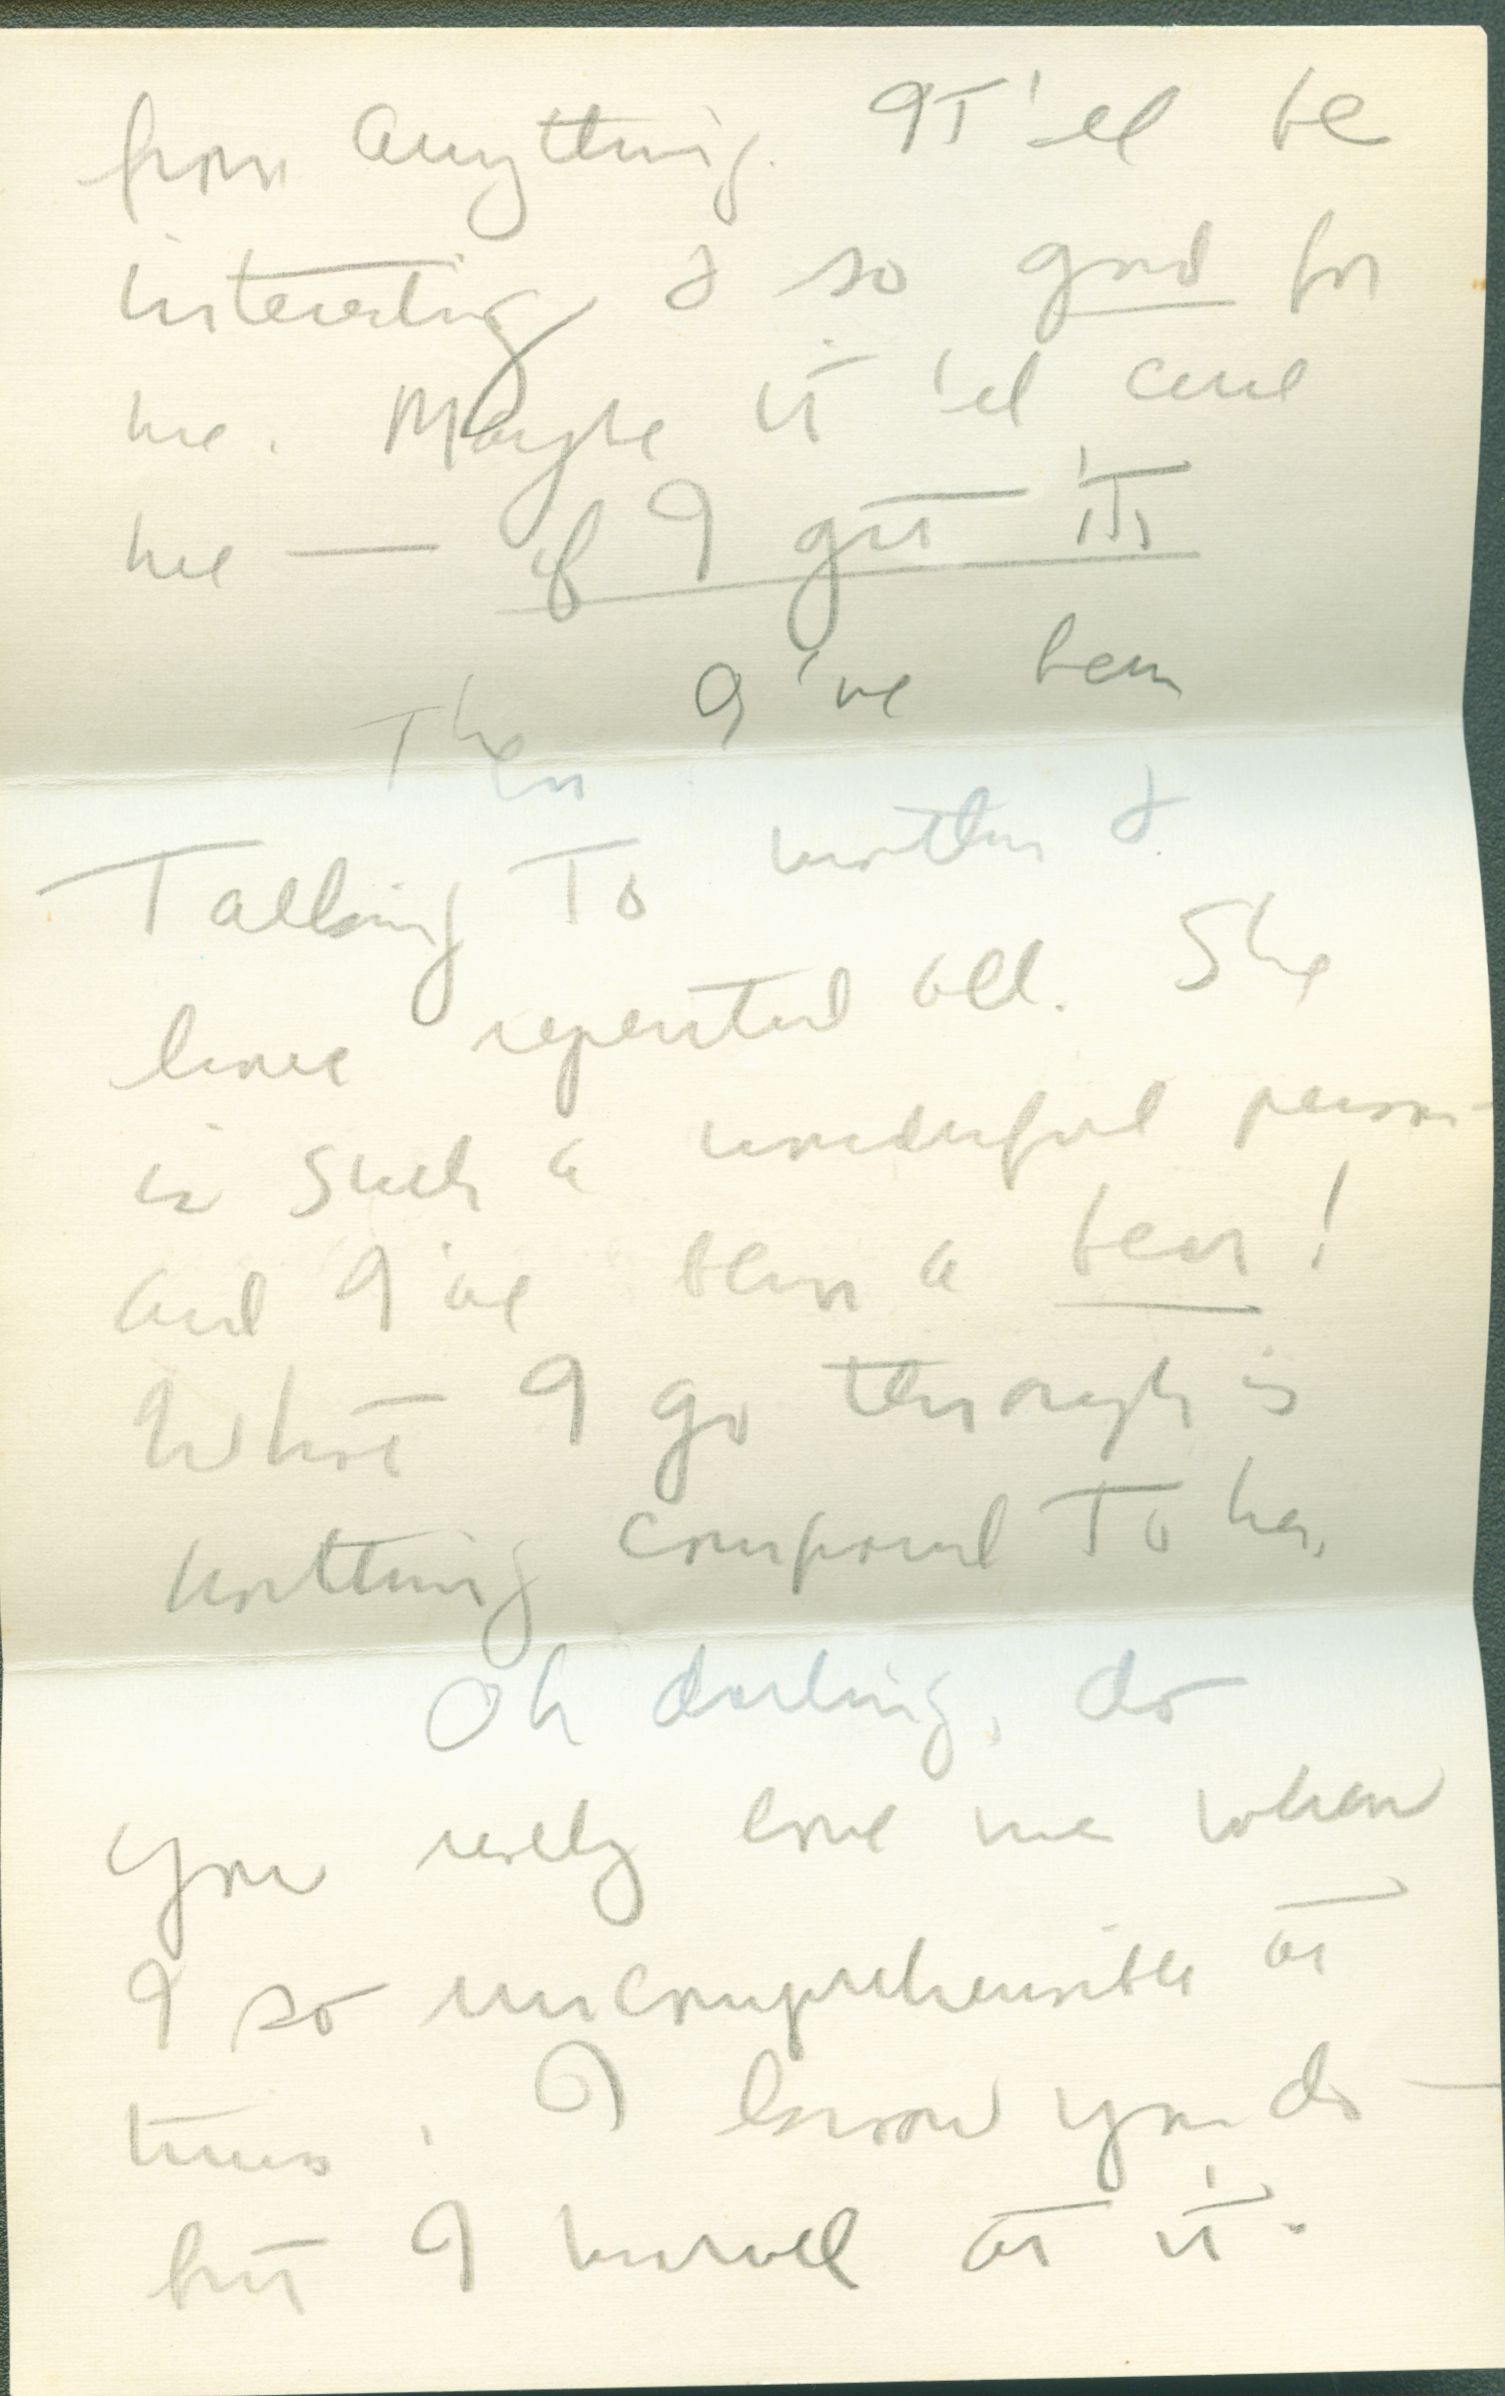 from anything. It'll be
interesting & so good for
me. Maybe it'll cure
me — if I get it
Then I've been
Talking To mother &
have repented all. She
is such a wonderful person —
and I've been a bear!
What I go through is
nothing compared To her.
Oh darling, do
you really love me when
I so uncomprehensible at
times. I know you do —
but I marvel at it.